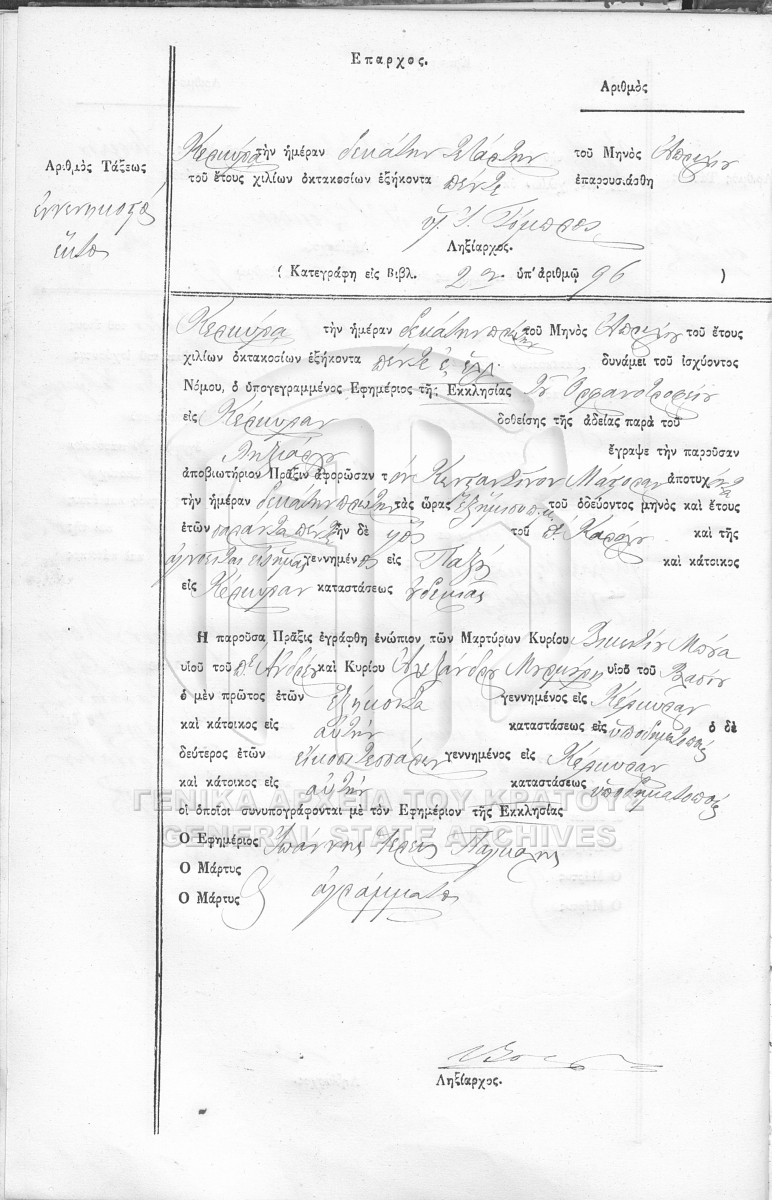 Επαρχος.
Αριθμὸς
Αριθμὸς Τάξεως
ἐννενηκοστὸ
ἕκτο
Κέρκυρα τὴν ἡμέραν δεκάτην τετάρτην τοῦ Μηνὸς Ἀπριλίου
τοῦ ἔτους χιλίων ὀκτακοσίων ἑξήκοντα πέντε ἐπαρουσιάσθη
Ληξίαρχος.
( Κατεγράφη εἰς Βιβλ. 2ον ὑπ' ἀριθμῷ 96 )
Κέρκυρα τὴν ἡμέραν δεκάτην πρώτην τοῦ Μηνὸς Ἀπριλίου τοῦ ἔτους
χιλίων ὀκτακοσίων ἑξήκοντα πέντε ἔ. ἑλλ. δυνάμει τοῦ ἰσχύοντος
Νόμου, ὁ ὑπογεγραμμένος Ἐφημέριος τῆς Εκκλησίας τοῦ Ὀρφανοτροφείου
εἰς Κέρκυραν δοθείσης τῆς ἀδείας παρὰ τοῦ
Ληξιάρχου ἔγραψε τὴν παροῦσαν
ἀποβιωτήριον Πρᾶξιν ἀφορῶσαν τὸν Κωνσταντῖνον ἀποτυχόντα
τὴν ἡμέραν δεκάτην πρώτην τὰς ὥρας τοῦ ὁδεύοντος μηνὸς καὶ ἔτους
ἐτῶν σαράντα πέντε ἦν δὲ υἱὸς τοῦ καὶ τῆς
γεννημένος εἰς Παξοὺς καὶ κάτοικος
εἰς Κέρκυραν καταστάσεως οὐδεμιᾶς
Η παροῦσα Πρᾶξις ἐγράφθη ἐνώπιον τῶν Μαρτύρων Κυρίου
υἱοῦ τοῦ π. Ἀνδρέου καὶ Κυρίου Ἀλεξάνδρου υἱοῦ τοῦ Βλασίου
ὁ μὲν πρῶτος ἐτῶν ἑξήκοντα γεννημένος εἰς Κέρκυραν
καὶ κάτοικος εἰς αὐτὴν καταστάσεως εἰς ὑποδηματοποιός ὁ δὲ
δεύτερος ἐτῶν εἴκοσι τεσσάρων γεννημένος εἰς Κέρκυραν
καὶ κάτοικος εἰς αὐτὴν καταστάσεως ὑποδηματοποιός
οἱ ὁποῖοι συνυπογράφονται μὲ τὸν Ἐφημέριον τῆς Εκκλησίας
Ο Εφημέριος Ἰωάννης Ἱερεὺς
Ο Μάρτυς
Ο Μάρτυς ἀγράμματοι
Ληξίαρχος.
ΓΕΝΙΚΑ ΑΡΧΕΙΑ ΤΟΥ ΚΡΑΤΟΥΣ
GENERAL STATE ARCHIVES